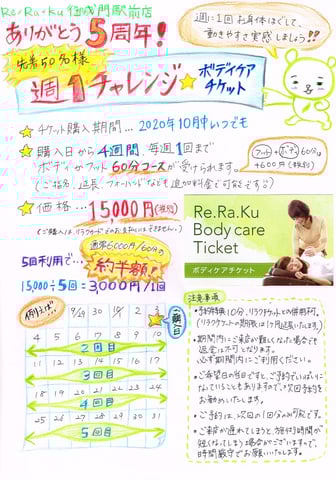 Re.Ra.Ku 御成門駅前店
ありがとう5周年!
週に1回お身体ほぐして、
動きやすさ実感しましょう!!
先着50名様
週1チャレンジ
ボディケア
チケット
チケット購入期間…2020年10月中いつでも
購入日から4週間、毎週1回まで
ボディorフット60分コースが受けられます。
(ご指名、延長、フォーハンドなども追加料金で可能です)
フット+ボディ60分
+600円(税別)
価格…15000円(税別)
通常6000円/60分の
約半額!
5回利用で…
15000÷5回=3000円/1回
Re.Ra.Ku
Body care
Ticket
ボディケアチケット
例えば!!
9/28 29 30 10/1 2 3
ご購入日
4 5 6 7 8 9 10
2回目
11 12 13 14 15 16 17
3回目
18 19 20 21 22 23 24
4回目
25 26 27 28 29 30 31
5回目
注意事項
・予約特典10分、リラクチケットとの併用不可。
(リラクチケットの期限は1ヶ月延長いたします)
・期間内にご来店が難しくなった場合でも
返金は不可となります。
必ず期間内にご利用ください。
・ご希望日の当日ですと、ご予約でいっぱいに
なっていることもありますので、次回予約を
お勧めいたします。
・ご予約は、次回の1回分のみ可能です。
・ご来店が遅れてしまうと、施術時間が
短くなってしまう場合がございますので、
時間厳守でお願いいたします。